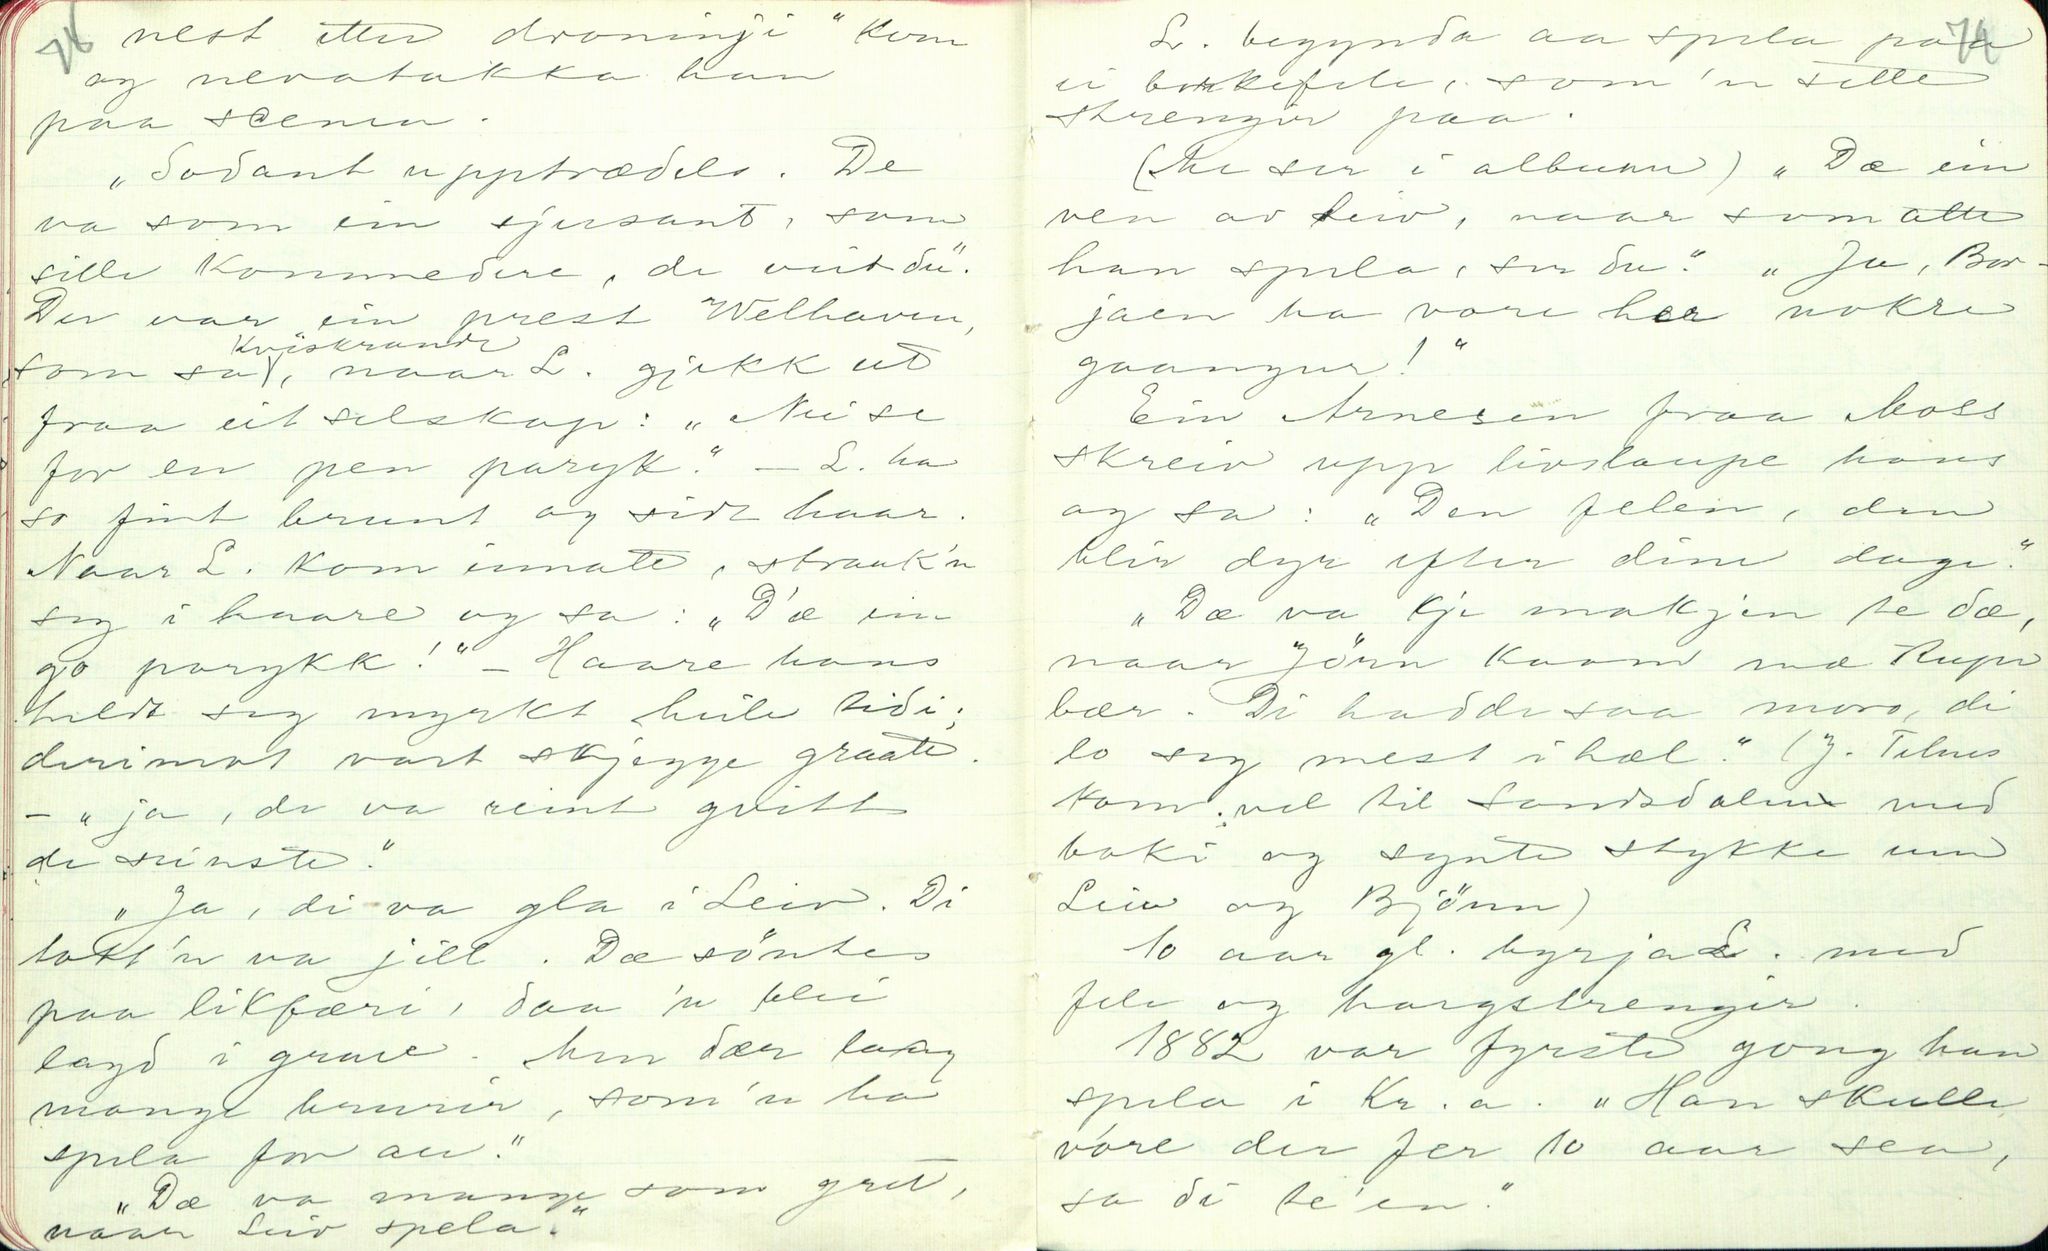 nest etter droningi" kom
og nevatakka han
paa scenen.
„Sodant upptrædels. De
va som ein sjusant, som
sille kommedere, de veit du".
Der var ein prest Welhaven,
kviskrande
som sa, naar L. gjekk ut
fraa eit selskap: „Nei se
for en pen paryk." – L. ha
so fint brunt og sidt haar.
Naar L. kom innatt, strauk'n
seg i haare og sa: „D'æ ein
go parykk!" – Haare hans
heldt seg myrkt heile tidi;
derimot vart skjegge graatt.
– „ja, de va reint gvitt
de seinste."
„Ja, di va gla i Leiv. Di
tott'n va jill. Dæ söntes
paa likfæri, daa 'n blei
lagd i grave. Men dær laag
mange brurir, som'n ha
spela for au."
„Dæ va mange som gret,
naar Leiv spela."
74
L. begynda aa spela paa
ei borkefele, som 'n sette
strengir paa.
(Me ser i albumm) „Dæ ein
ven av Leiv, naar som atte
han spela, ser du." „Ja, Bor-
jaen ha vore her nokre
gaangur!"
Ein Arnesen fraa Moss
skreiv upp livslaupe hans
og sa: „Den felen, den
blir dyr efter dine dage."
„Dæ va kje makjen te dæ,
naar Jörn kaam mæ Kupe
bær. Di hadde saa moro, di
lo seg mest i hæl." (J. Telnes
kom vel til Sandsdalen med
boki og synte stykke um
Leiv og Björnn)
10 aar gl. byrja L. med
fele og hargstrengir.
1882 var fyrste gong han
spela i Kr.a. „Han skulle
vore der fer 10 aar sea,
sa di te'en."